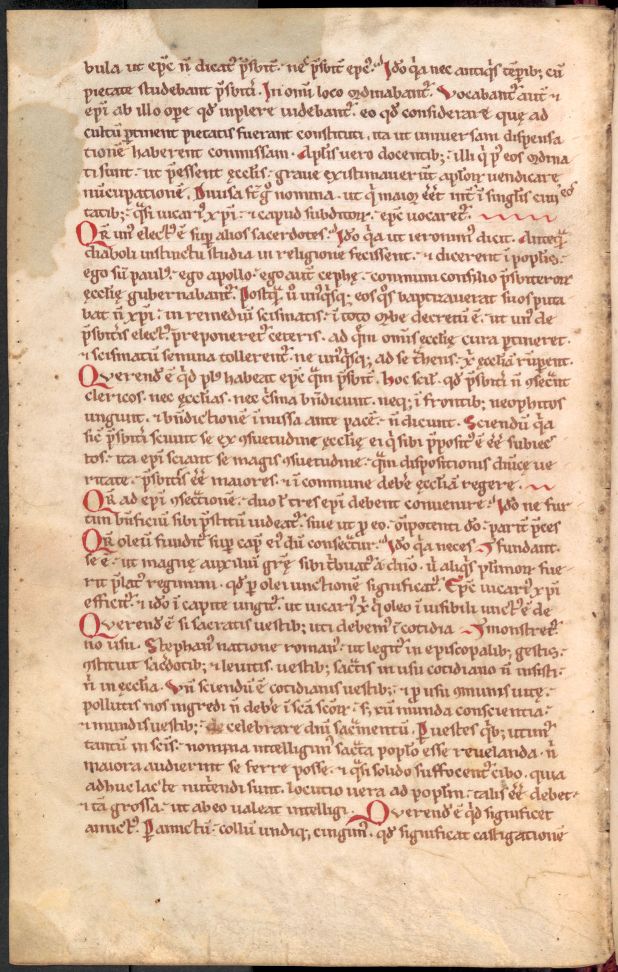 bula ut ep̅c n̅ dicat᷒ p̅sbit̅. ne p̅sbit̅ ep̅c. Ido q̅a nec antiq̅s te̅pib; cu̅
pietate studebant p̅sbit̅i. In om̅i loco ordinabant᷒. Vocabant᷒ aut̅ ⁊
ep̅i ab illo ope qd̅ inplere videbant᷒. eo qd̅ considerare quę ad
cultu̅ ptinent pietatis fuerant constituti. ita ut universam dispensa
tione̅ haberent commissam. Aplis vero docentib; illi q̅ p᷒ eos ordina
ti sunt. ut p̅essent ęcclis. grave existimaver̅ ut aplor̅ vendicare
nu̅cupatione̅. Divisa nomina. ut q̅ maior e̅e̅t int̅ i̅ singlis civi
tatib; q̅si vicari᷒ xp̅i. ⁊ capud subditor̅. ep̅c vocaret᷒.
Qr̅ un᷒ elect᷒ e̅ sup̅ alios sacerdotes. Ido q̅a ut ieronim᷒ dicit. Anteq̅
diaboli instinctu studia in religione fecissent. ⁊ dicerent i̅ poplis.
ego su̅ pauli. ego apollo. ego aut̅ cephę. communi consilio p̅sbiteror̅
ęcclię gubernabant᷒. Postq̅ v̅ un᷒q̅sq; eos q᷒s baptizaverat suos puta
bat n̅ xp̅i. in remediu̅ scismatis. i̅ toto orbe decretu̅ e̅. ut un᷒ de
p̅sbit̅is elect᷒ preponeret᷒ ceteris. ad que̅ omis ęcclię cura ptineret.
⁊ scismatu̅ semina tollerent᷒. ne un᷒q̅sq; ad se t̅hens xp̅i ęcclia̅ ru̅perent.
Querend̅ e̅ q̅d pl᷒ habeat ep̅c q̅m p̅sbit̅. hoc scil̅. qd̅ p̅sbit̅i n̅ 9secr̅nt
clericos. nec ęcclias. nec c̅sma bn̅dicunt. neq; i̅ frontib; neophitos
ungunt. ⁊ bn̅dictione̅ i̅ missa ante pace̅. n̅ dicunt. Sciendu̅ q̅a
sic̅ p̅sbit̅i sciunt se ex 9suetudine ęcclię ei q̅ sibi p̅posit᷒ e̅ e̅e̅ subiec
tos. ita ep̅i sciant se magis 9suetudine. q̅m dispositionis dn̅icę ve
ritate. p̅sbit̅is e̅e̅ maiores. ⁊ i̅ commune debe̅ ęcclia̅ regere.
Qr̅ ad ep̅i 9secr̅tione̅. duo l̅ tres ep̅i debent convenire. Ido ne fur
tim bn̅ficiu̅ sibi p̅stitu̅ videat᷒. sive ut p̅ eo. om̅ipotenti do̅. parit̅ p̅ces
Qr̅ oleu̅ fundit᷒ sup̅ cap᷒ ei᷒ du̅ consecr̅t᷒. Ido q̅a neces fundant.
se e̅. ut magnę auxiliu̅ gr̅ę sibi t̅buat᷒ a dn̅o. u̅ aliq᷒s plimor̅ fue
rit p̅lat᷒ regimini. qd̅ p oleı unctione̅ significat᷒. Ep̅c vicari᷒ xp̅i
efficit᷒. ⁊ ido i̅ capite ungit᷒. ut vicari᷒ xp̅i q̅ oleo i̅visibili unct᷒ e̅ de
Querend̅ e̅ si sacratis vestib; uti debem᷒ i̅ cotidia monstret᷒.
no usu. Stephan᷒ natione roman᷒. ut legit᷒ in episcopalib; gestis.
9stituit sac̅dotib; ⁊ levitis. vestib; sac̅tis in usu cotidiano n̅ insisti.
n̅ in ęcclia. Vn̅ sciendu̅ e̅ cotidianis vestib; ⁊ p usu 9munis vitę
pollutis nos ingredi n̅ debe̅ i̅ sc̅a sc̅or̅. s; cu̅ munda conscientia.
⁊ mundis vestib; celebrare dn̅i sac̅mentu̅. P vestes q̅b; utim᷒
tantu̅ in sc̅is. nomina intelligim᷒ sac̅ta poplo esse revelanda. n̅
maiora audierint se ferre posse. ⁊ q̅si solido suffocent᷒ cibo. quia
adhuc lacte nut̅endi sunt. locutio vera ad poplm̅. talis e̅e̅ debet.
⁊ ta̅ grossa. ut ab eo valeat intelligi. Querend̅ e̅ q̅d significet
amict᷒. P amictu̅. collu̅ undiq; cingim᷒. qd̅ significat castigatione̅